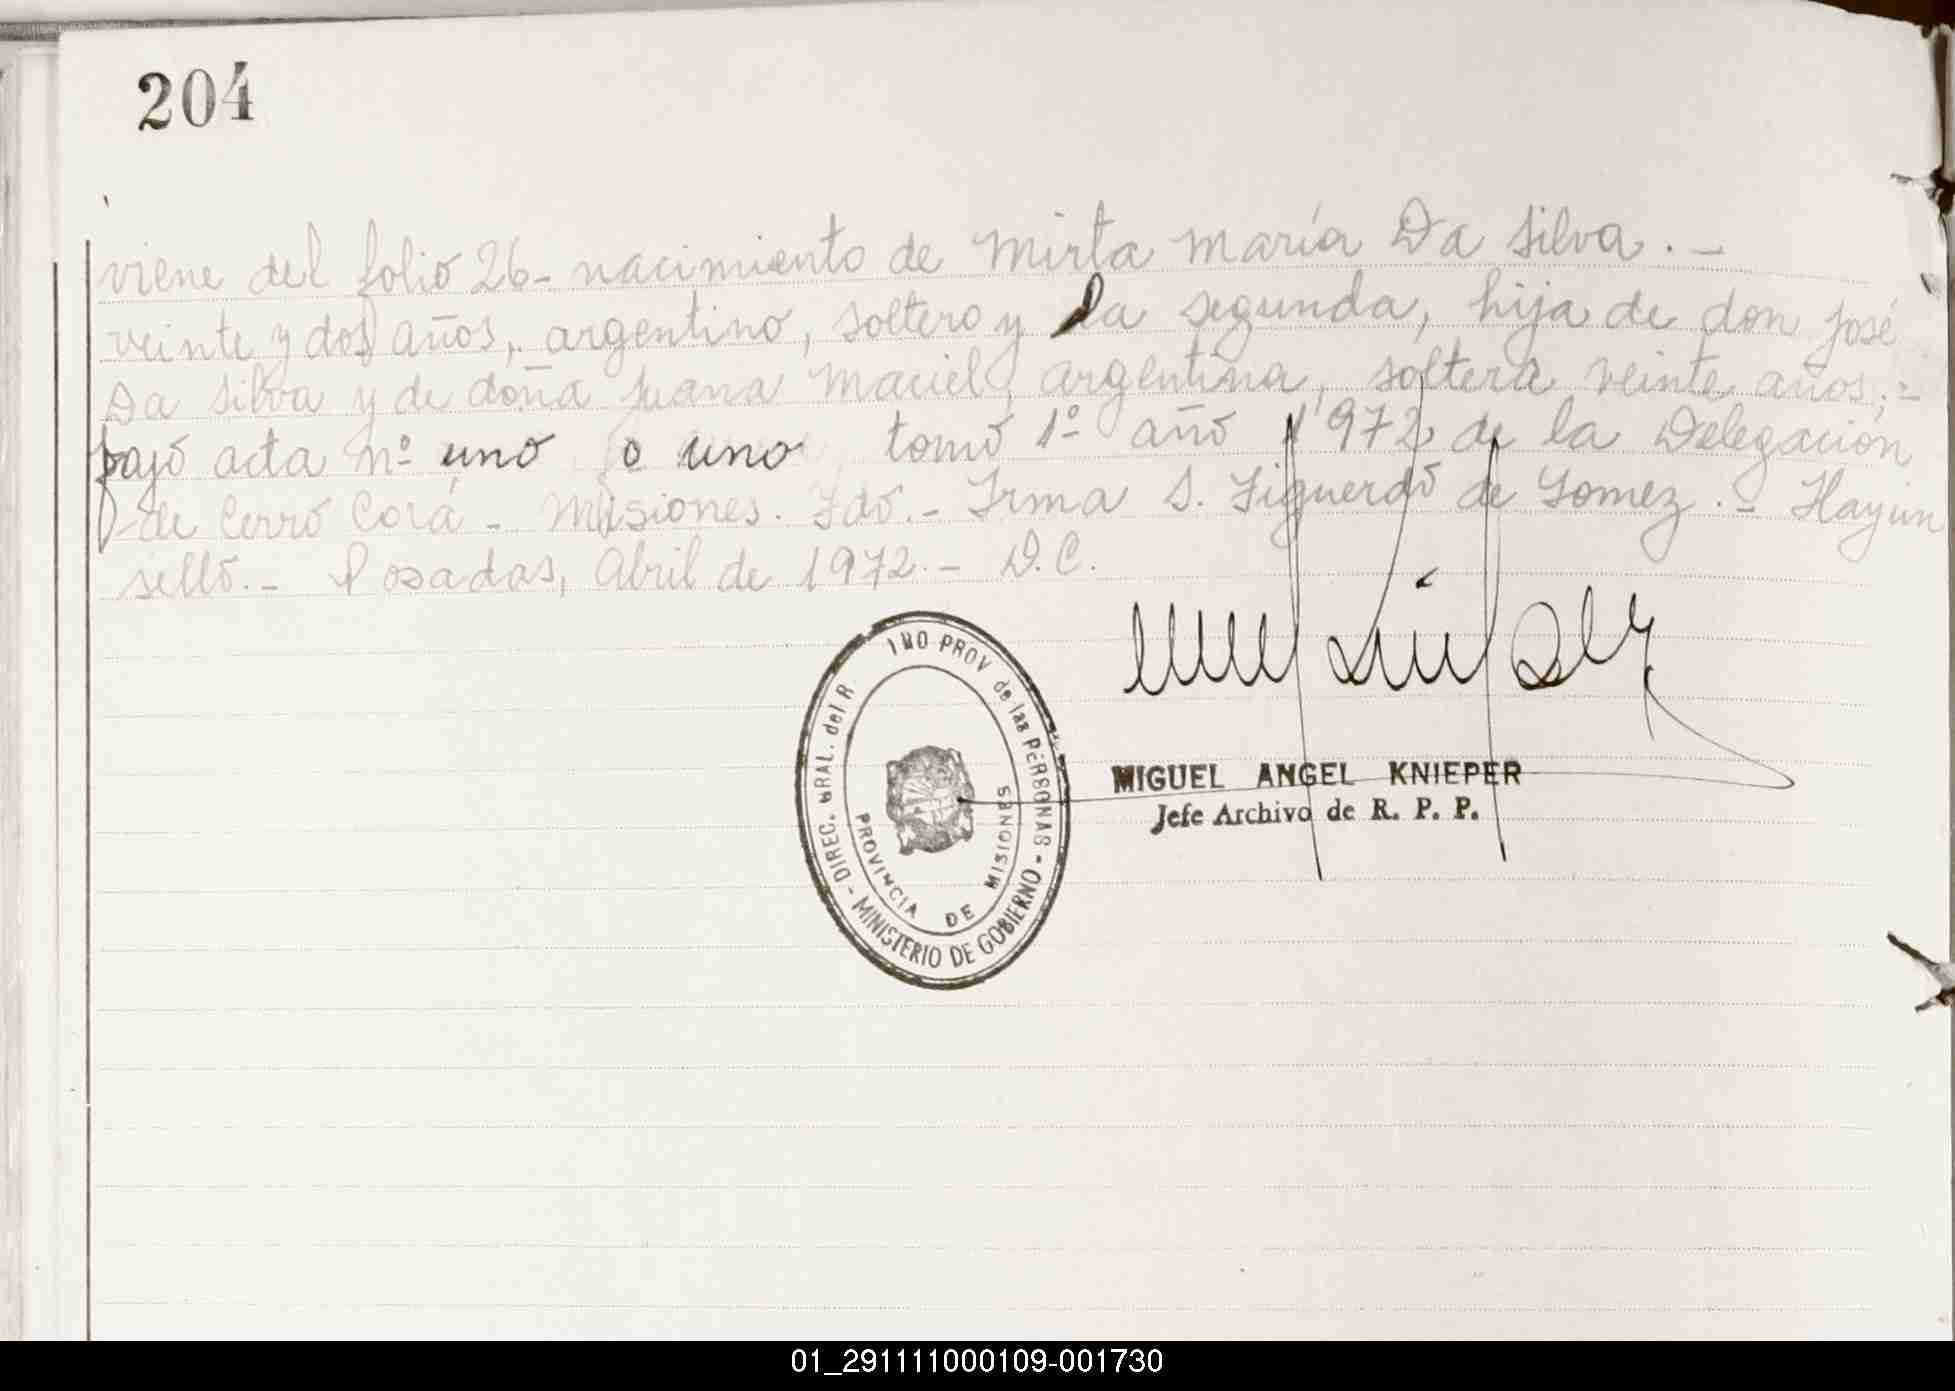 204
viene del folio 26- nacimiento de Mirta María Da Silva. -
veinte y dos años, argentino, soltero y la segunda, hija de don José
Da Silva y de doña Juana Maciel, argentina, soltera veinte años; -
bajo acta nº uno fº uno tomo 1º año 1972 de la Delegación
de Cerro Corá - Misiones. Fdo. - Irma S. Figueredo de Gomez. - Hay un
sello. - Posadas, Abril de 1972. - D.C.
DIREC. GRAL. del R. PROV de las PERSONAS - MINISTERIO DE GOBIERNO -
PROVINCIA DE MISIONES
MIGUEL ANGEL KNIEPER
Jefe Archivo de R. P. P.
01_291111000109-001730